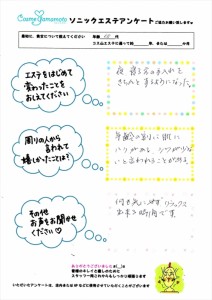 Cosme Yamamoto ソニックエステアンケート ご協力お願い致します
最初に、貴女について教えてください 年齢 代
コスメエステに通って約 年、または ヶ月
エステをはじめて
変わったことを
おしえてください
夜 寝る前の手入れを
きちんとするようになった。
周りの人から
言われて
嬉しかったことは?
年齢の割りに 肌に
ハリがある シワが少な
いと言われることがある。
その他
お声をお聞かせ
ください
何も考えずリラックス
出来る時間です
ありがとうございました
いただいたアンケートは、店内またはHPなどに掲載させていただくことがございます